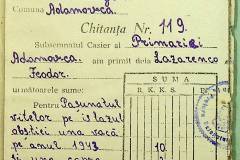 Comuna Adamovca
Chitanța Nr. 119.
Subsemnatul Casier al Primăriei
Adamovca. am primit dela Lazarenco
Teodor.
SUMA
următoarele sume:
R. K. K. S.
Pentru Pasunatul
vitelor pe islazul
obștiei una vacă
pe anul 1943 10
și una